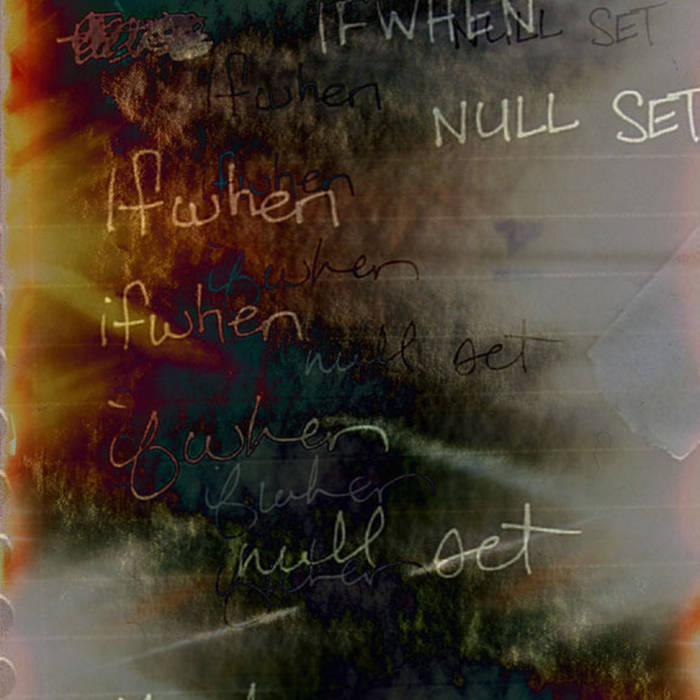 IFWHEN NULL SET
Ifwhen
NULL SET
ifwhen
Ifwhen
ifwhen
ifwhen
null set
ifwhen
ifwhen
null set
ifwhen